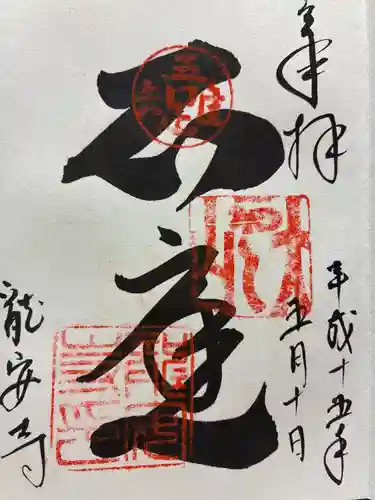 奉拝
平成十五年
五月十日
石庭
龍安寺
吾唯足知